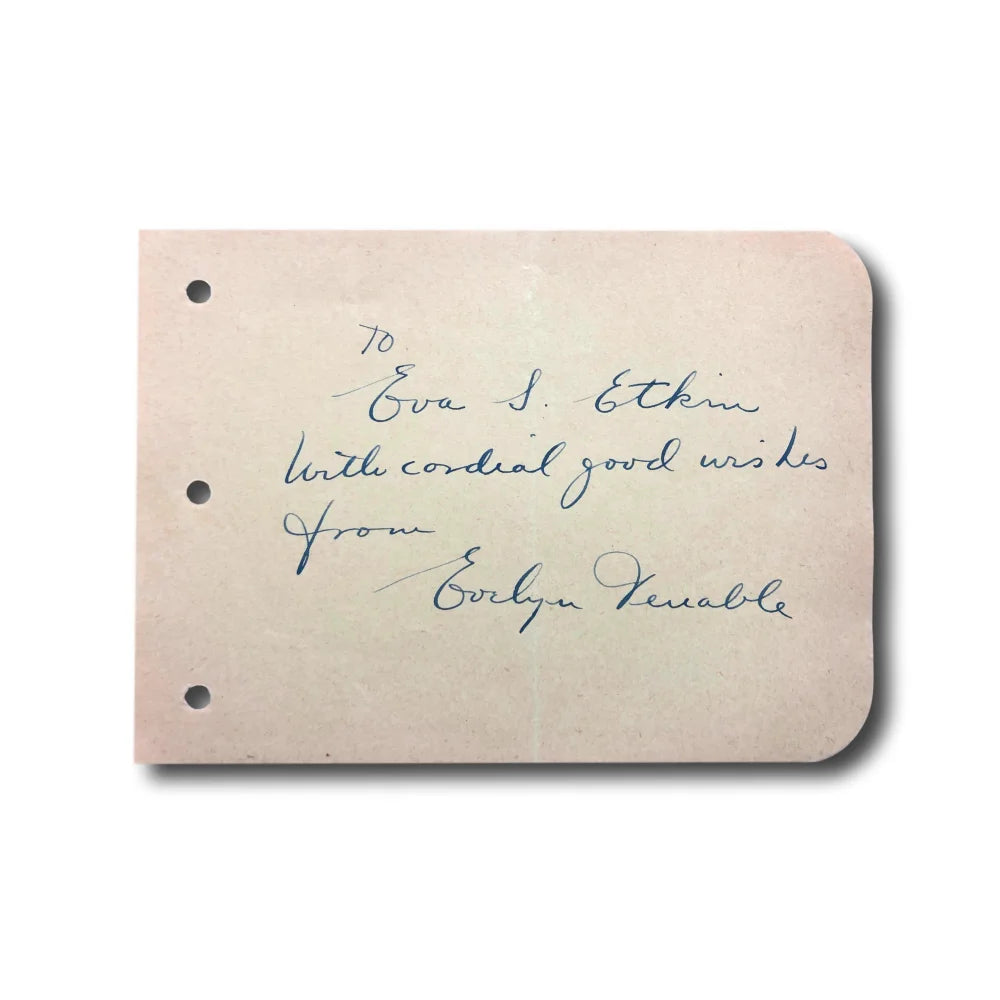 To
Eva S. Etkin
With cordial good wishes
from
Evelyn Venable